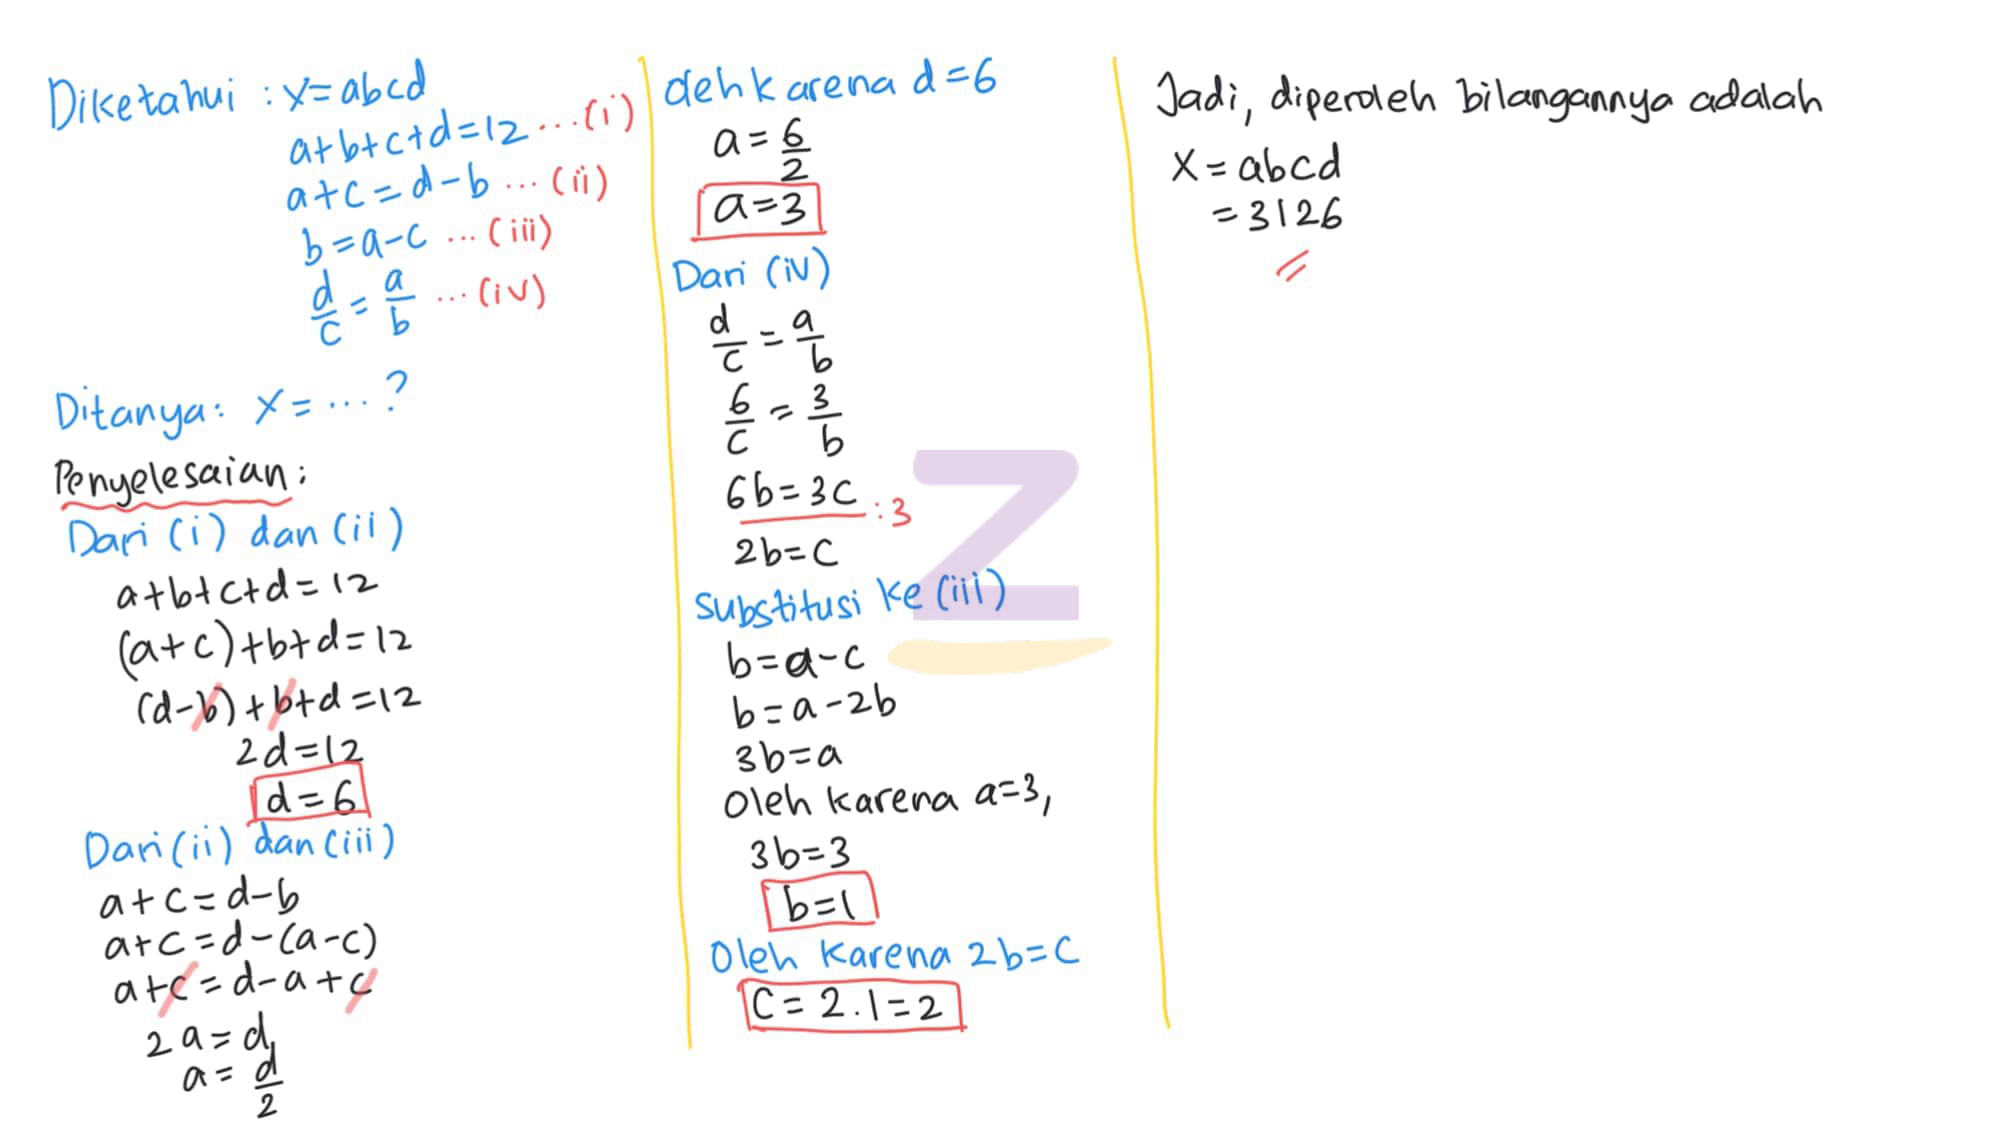 Diketahui : x=abcd
a+b+c+d=12 ...(i)
a+c=d-b ...(ii)
b=a-c ...(iii)
d/c = a/b ...(iv)
Ditanya: x=...?
Penyelesaian:
Dari (i) dan (ii)
a+b+c+d=12
(a+c)+b+d=12
(d-b)+b+d=12
2d=12
d=6
Dari (ii) dan (iii)
a+c=d-b
a+c=d-(a-c)
a+c=d-a+c
2a=d
a=d/2
Oleh karena d=6
a=6/2
a=3
Dari (iv)
d/c = a/b
6/c = 3/b
6b=3c :3
2b=c
Substitusi ke (iii)
b=a-c
b=a-2b
3b=a
Oleh karena a=3,
3b=3
b=1
Oleh karena 2b=c
c=2.1=2
Jadi, diperoleh bilangannya adalah
x=abcd
=3126
Z